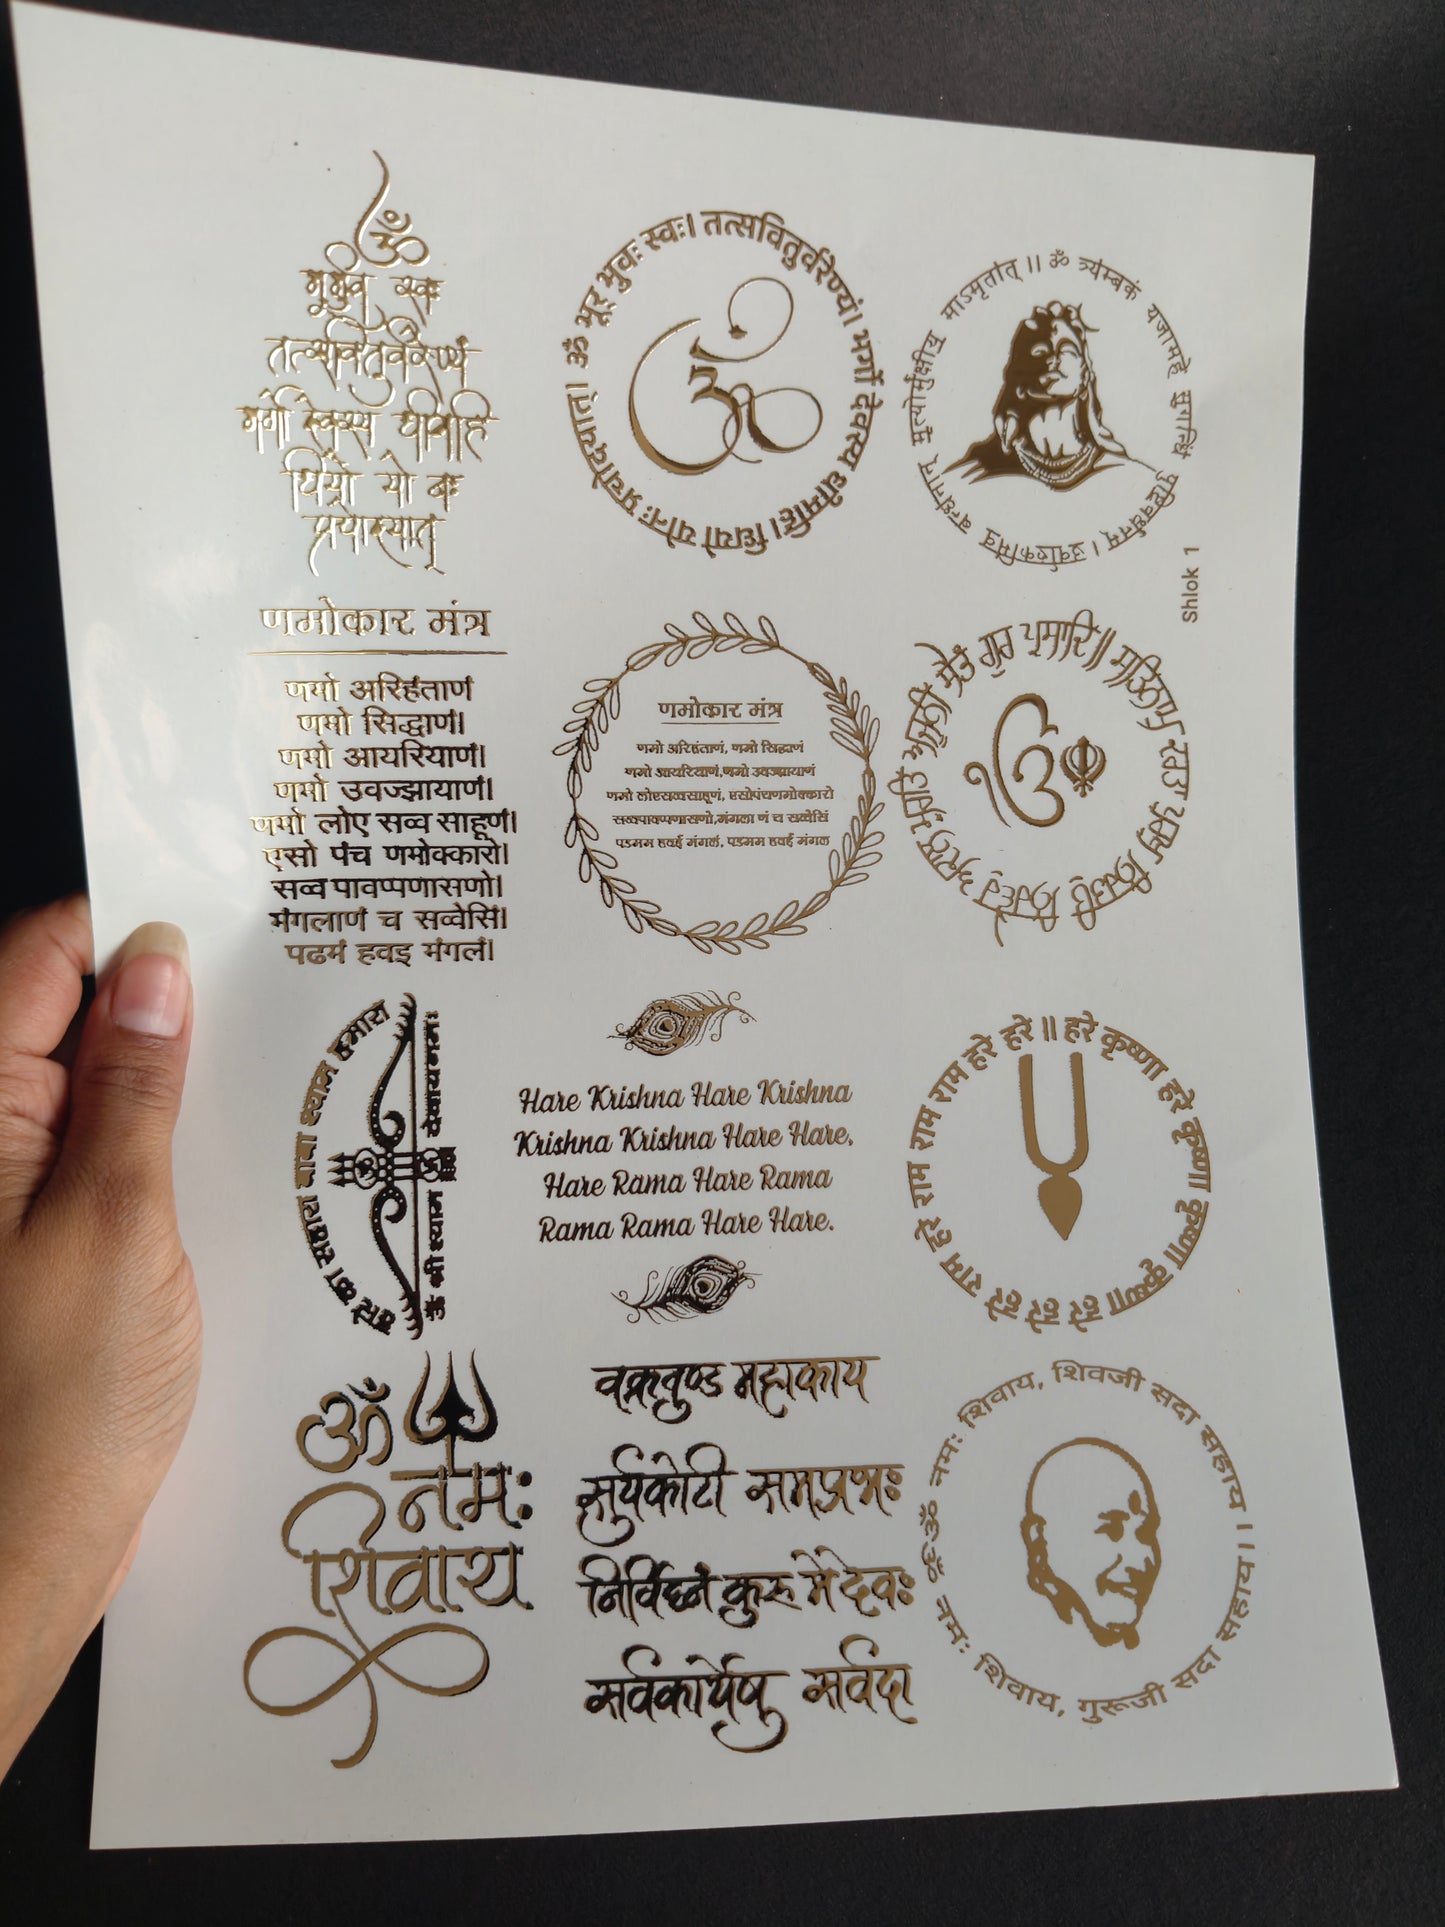 ॐ
भूर्भुवः स्वः
तत्सवितुर्वरेण्यं
भर्गो देवस्य धीमहि
धियो यो नः
प्रचोदयात्
ॐ भूर् भुवः स्वः। तत्सवितुर्वरेण्यं। भर्गो देवस्य धीमहि। धियो योनः प्रचोदयात्।
ॐ
ॐ त्र्यम्बकं यजामहे सुगन्धिं पुष्टिवर्धनम्। उर्वारुकमिव बन्धनान् मृत्योर्मुक्षीय माऽमृतात् ॥
Shlok 1
णमोकार मंत्र
णमो अरिहंताणं
णमो सिद्धाणं।
णमो आयरियाणं।
णमो उवज्झायाणं।
णमो लोए सव्व साहूणं।
एसो पंच णमोक्कारो।
सव्व पावप्पणासणो।
मंगलाणं च सव्वेसिं।
पढमं हवइ मंगलं।
णमोकार मंत्र
णमो अरिहंताणं, णमो सिद्धाणं
णमो आयरियाणं,णमो उवज्झायाणं
णमो लोएसव्वसाहूणं, एसोपंचणमोक्कारो
सव्वपावप्पणासणो,मंगला णं च सव्वेसिं
पडमम हवई मंगलं, पडमम हवई मंगल
ੴ
ਸਤਿਨਾਮੁ ਕਰਤਾ ਪੁਰਖੁ ਨਿਰਭਉ ਨਿਰਵੈਰੁ ਅਕਾਲ ਮੂਰਤਿ ਅਜੂਨੀ ਸੈਭੰ ਗੁਰ ਪ੍ਰਸਾਦਿ॥
हारे का सहारा बाबा श्याम हमारा
ॐ श्री श्याम देवाय नमः।
Hare Krishna Hare Krishna
Krishna Krishna Hare Hare,
Hare Rama Hare Rama
Rama Rama Hare Hare.
हरे कृष्णा हरे कृष्णा कृष्णा कृष्णा हरे हरे हरे राम हरे राम राम राम हरे हरे ॥
ॐ
नमः
शिवाय
वक्रतुण्ड महाकाय
सुर्यकोटी समप्रभः
निर्विघ्नं कुरु मे देवः
सर्वकार्येषु सर्वदा
ॐ नमः शिवाय, शिवजी सदा सहाय ।
ॐ नमः शिवाय, गुरूजी सदा सहाय ।